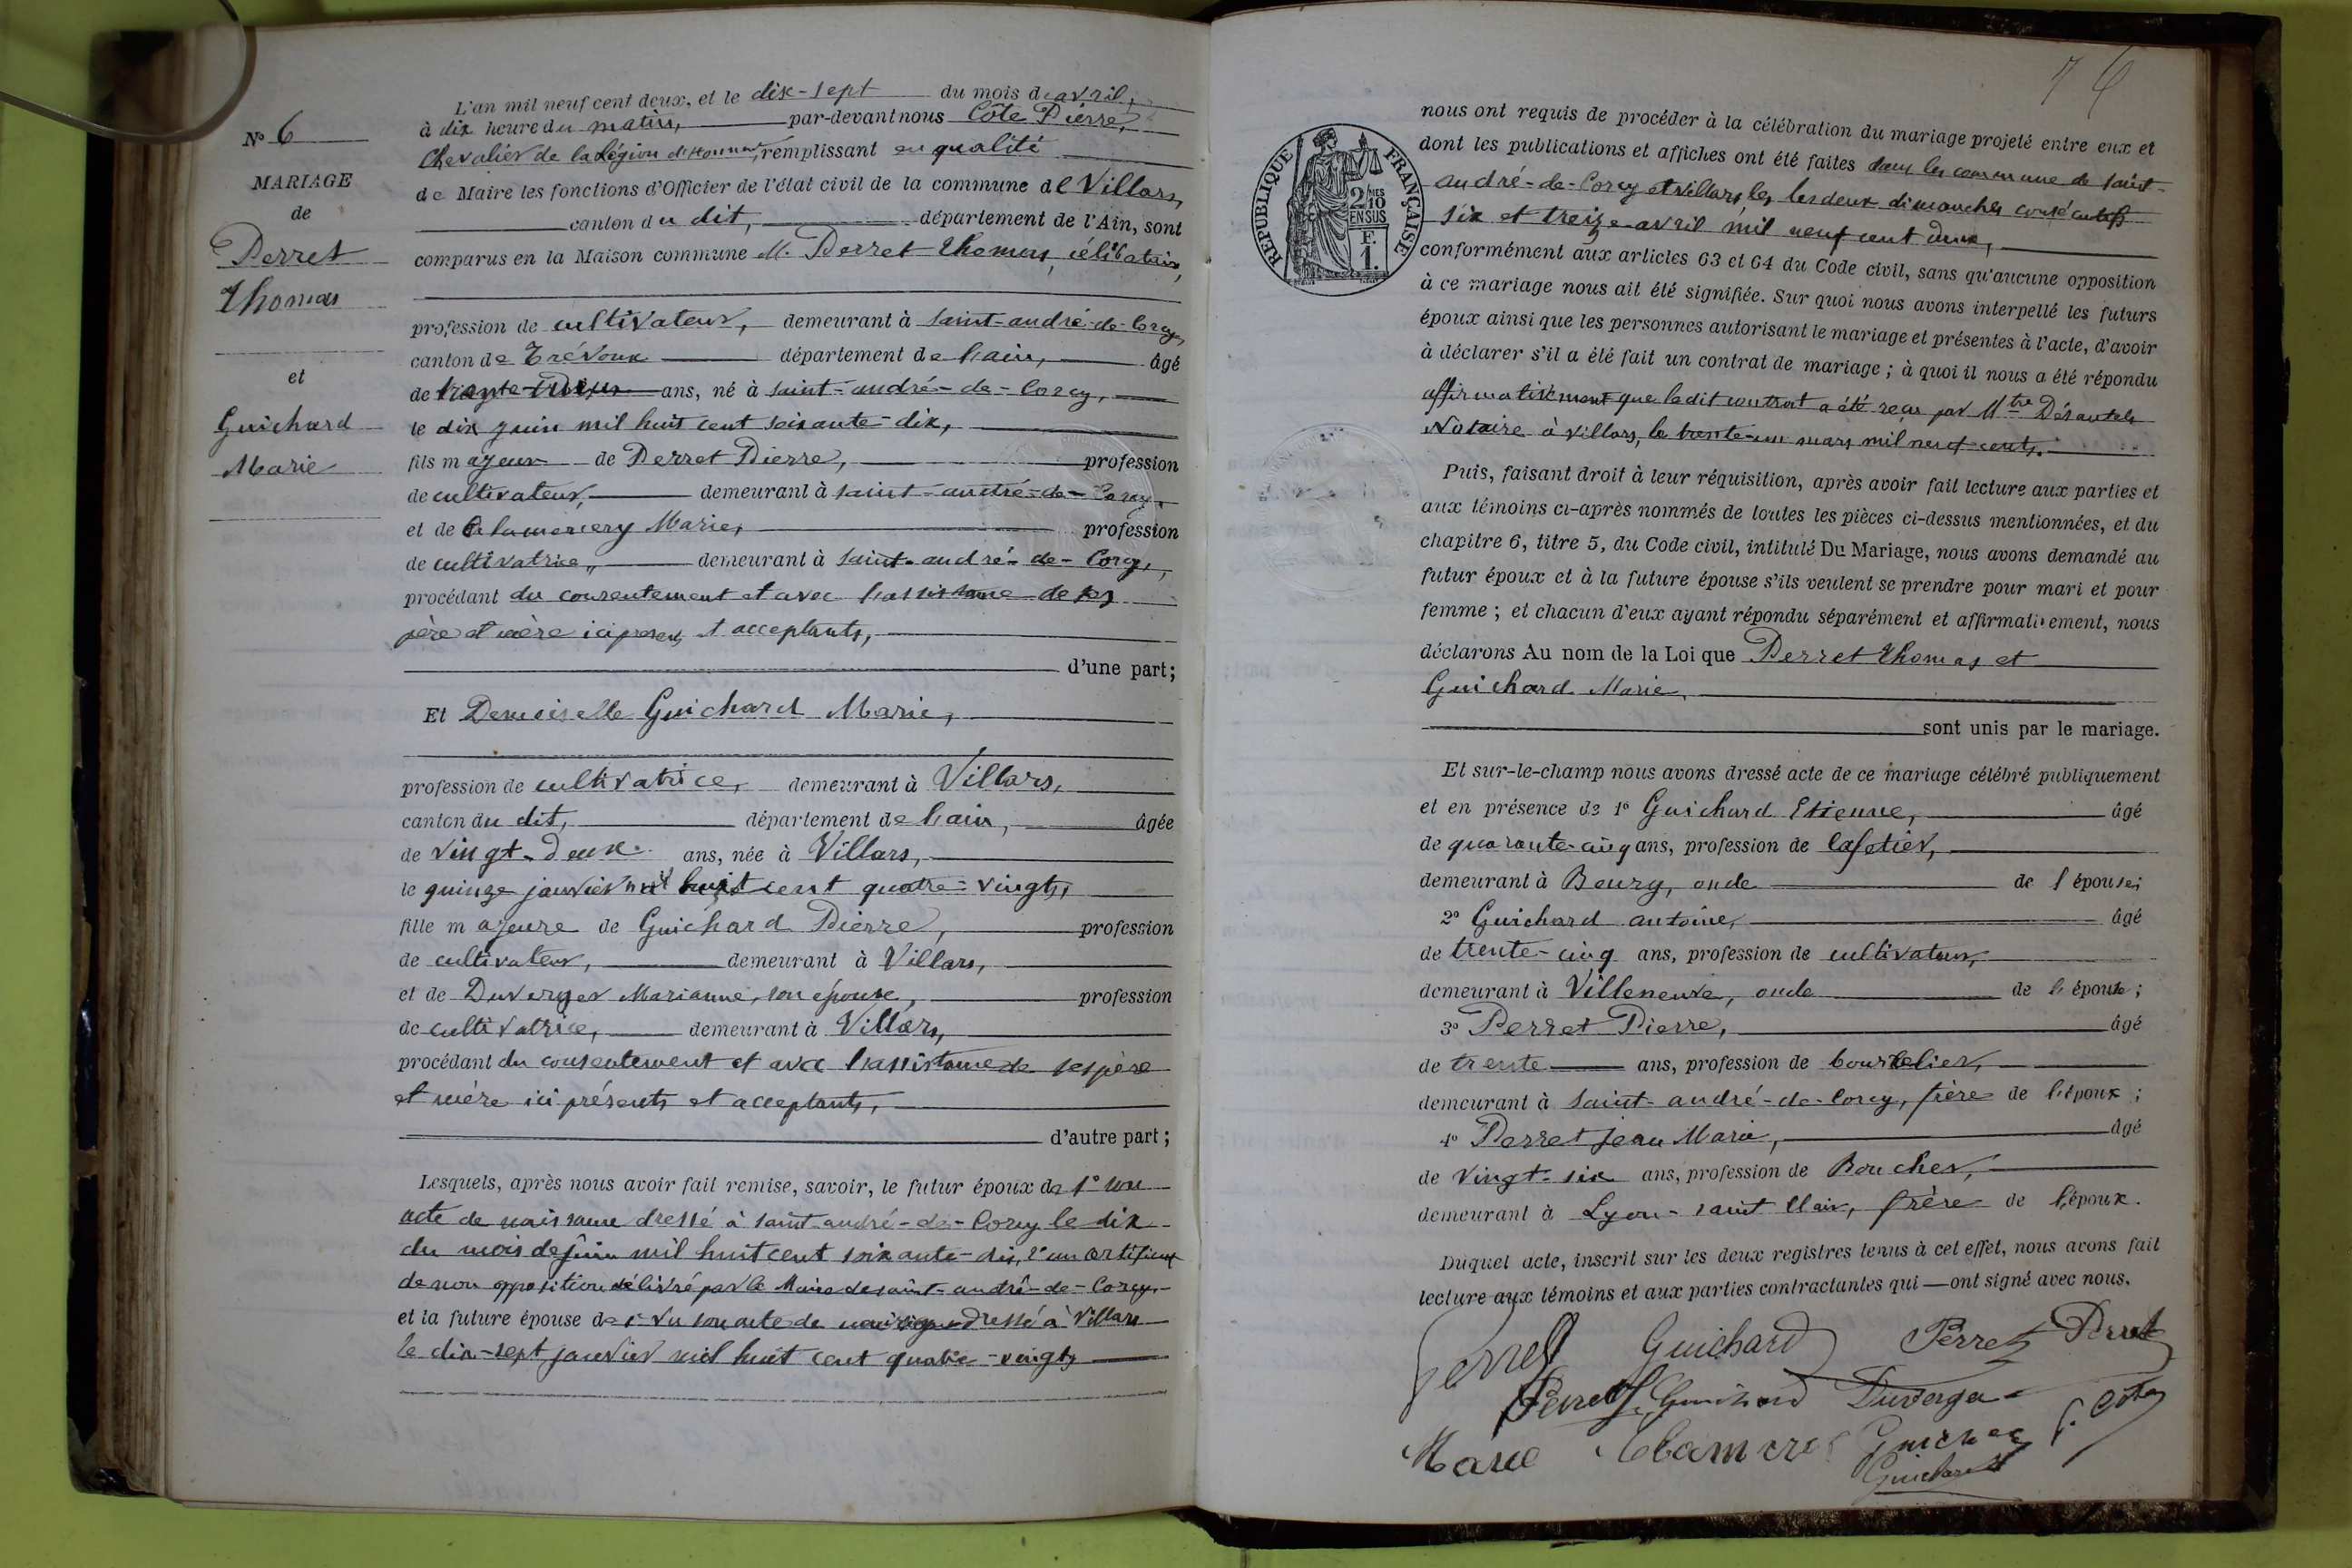 N° 6
MARIAGE
de
Perret
Thomas
et
Guichard
Marie
L'an mil neuf cent deux, et le dix-sept du mois d'avril,
à dix heure du matin, par-devant nous Côte Pierre,
Chevalier de la Légion d'Honneur, remplissant en qualité
de Maire les fonctions d'Officier de l'état civil de la commune de Villars,
canton du dit, département de l'Ain, sont
comparus en la Maison commune M. Perret Thomas, célibataire,
profession de cultivateur, demeurant à Saint-andré-de-Corcy,
canton de Trévoux département de l'ain, âgé
de ans, né à Saint-andré-de-Corcy,
le dix juin mil huit cent soixante-dix,
fils majeur de Perret Pierre, profession
de cultivateur, demeurant à saint-andré-de-Corcy,
et de Marie, profession
de cultivatrice, demeurant à saint-andré-de-Corcy,
procédant du consentement et avec l'assistance de ses
père et mère ici présents et acceptants,
d'une part;
Et Demoiselle Guichard Marie,
profession de cultivatrice, demeurant à Villars,
canton du dit, département de l'ain, âgée
de vingt-deux ans, née à Villars,
le quinze janvier mil huit cent quatre-vingts,
fille majeure de Guichard Pierre, profession
de cultivateur, demeurant à Villars,
et de Duverger Marianne, son épouse, profession
de cultivatrice, demeurant à Villars,
procédant du consentement et avec l'assistance de ses père
et mère ici présents et acceptants,
d'autre part;
Lesquels, après nous avoir fait remise, savoir, le futur époux de 1° son
acte de naissance dressé à saint-andré-de-Corcy le dix
du mois de juin mil huit cent soixante-dix, 2° un certificat
de non opposition délivré par le Maire de saint-andré-de-Corcy,
et la future épouse de 1° son acte de naissance dressé à Villars
le dix-sept janvier mil huit cent quatre-vingts
76
RÉPUBLIQUE FRANÇAISE
2/10 MES
EN SUS
F.
1.
nous ont requis de procéder à la célébration du mariage projeté entre eux et
dont les publications et affiches ont été faites dans les commune de saint-
andré-de-Corcy et villars, les les deux dimanches consécutifs
six et treize avril mil neuf cent deux,
conformément aux articles 63 et 64 du Code civil, sans qu'aucune opposition
à ce mariage nous ait été signifiée. Sur quoi nous avons interpellé les futurs
époux ainsi que les personnes autorisant le mariage et présentes à l'acte, d'avoir
à déclarer s'il a été fait un contrat de mariage; à quoi il nous a été répondu
affirmativement que ledit contrat a été reçu par Mtre Désautels
Notaire à villars, le trente-un mars mil neuf cent.
Puis, faisant droit à leur réquisition, après avoir fait lecture aux parties et
aux témoins ci-après nommés de toutes les pièces ci-dessus mentionnées, et du
chapitre 6, titre 5, du Code civil, intitulé Du Mariage, nous avons demandé au
futur époux et à la future épouse s'ils veulent se prendre pour mari et pour
femme; et chacun d'eux ayant répondu séparément et affirmativement, nous
déclarons Au nom de la Loi que Perret Thomas et
Guichard Marie,
sont unis par le mariage.
Et sur-le-champ nous avons dressé acte de ce mariage célébré publiquement
et en présence de 1° Guichard Etienne, âgé
de quarante-cinq ans, profession de Cafetier,
demeurant à Bourg, oncle de l'épouse;
2° Guichard antoine, âgé
de trente-cinq ans, profession de cultivateur,
demeurant à Villeneuve, oncle de l'épouse;
3° Perret Pierre, âgé
de trente ans, profession de bourrelier,
demeurant à saint-andré-de-Corcy, frère de l'époux;
4° Perret Jean Marie, âgé
de vingt-six ans, profession de Boucher,
demeurant à Lyon-saint Clair, frère de l'époux.
Duquel acte, inscrit sur les deux registres tenus à cet effet, nous avons fait
lecture aux témoins et aux parties contractantes qui ont signé avec nous.
Perret Guichard Perret Perret
Perret Guichard Duverger
Marie P. Cote
Guichard